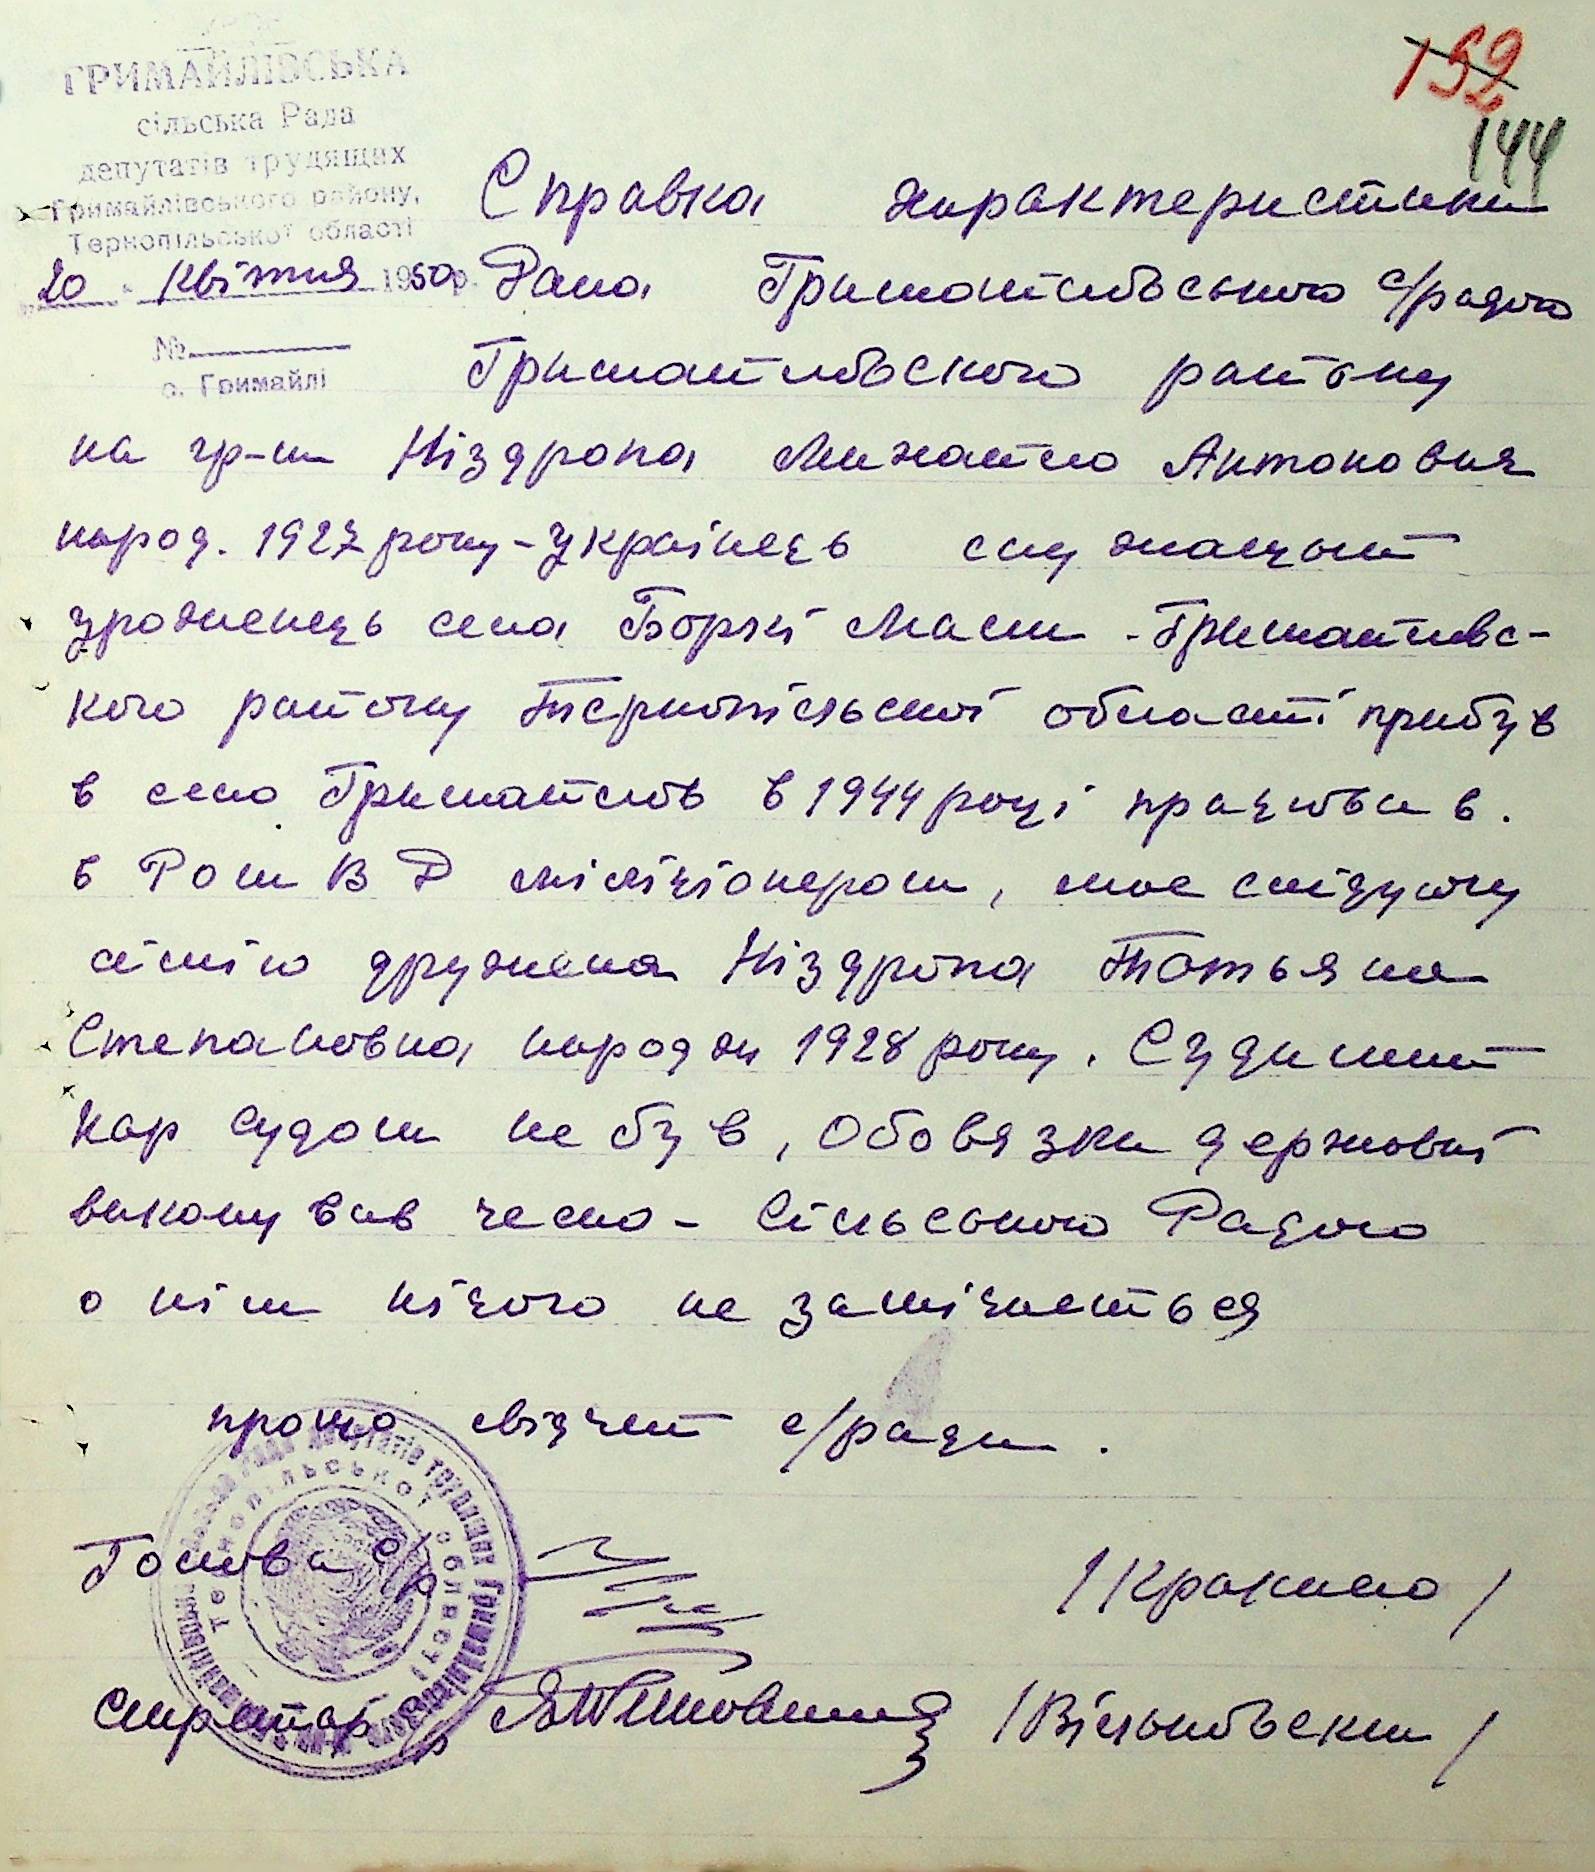 152
144
ГРИМАЙЛІВСЬКА
сільська Рада
депутатів трудящих
Гримайлівського району,
Тернопільської області
20 квітня 1950 р.
№
с. Гримайлі
Справка характеристики
Дана Гримайлівською с/радою
Гримайлівського району
на гр-на Ніздропа Михайло Антоновия
народ. 1927 року - Українець служащий
урожненець села Борки Малі - Гримайлівс-
кого району Тернопільської області прибув
в село Гримайлів в 1944 році працював.
в РоМВД міліціонером, має слідуючу
сімію дружена Ніздропа Татьяна
Степановна народж 1928 року. Судимий
нар судом не був, Обовязки державні
виконував чесно - Сільською Радою
о нім нічого не замічається
прощо свідчит с/рада.
Голова с/р
Секретар с/р /Вільковьски/